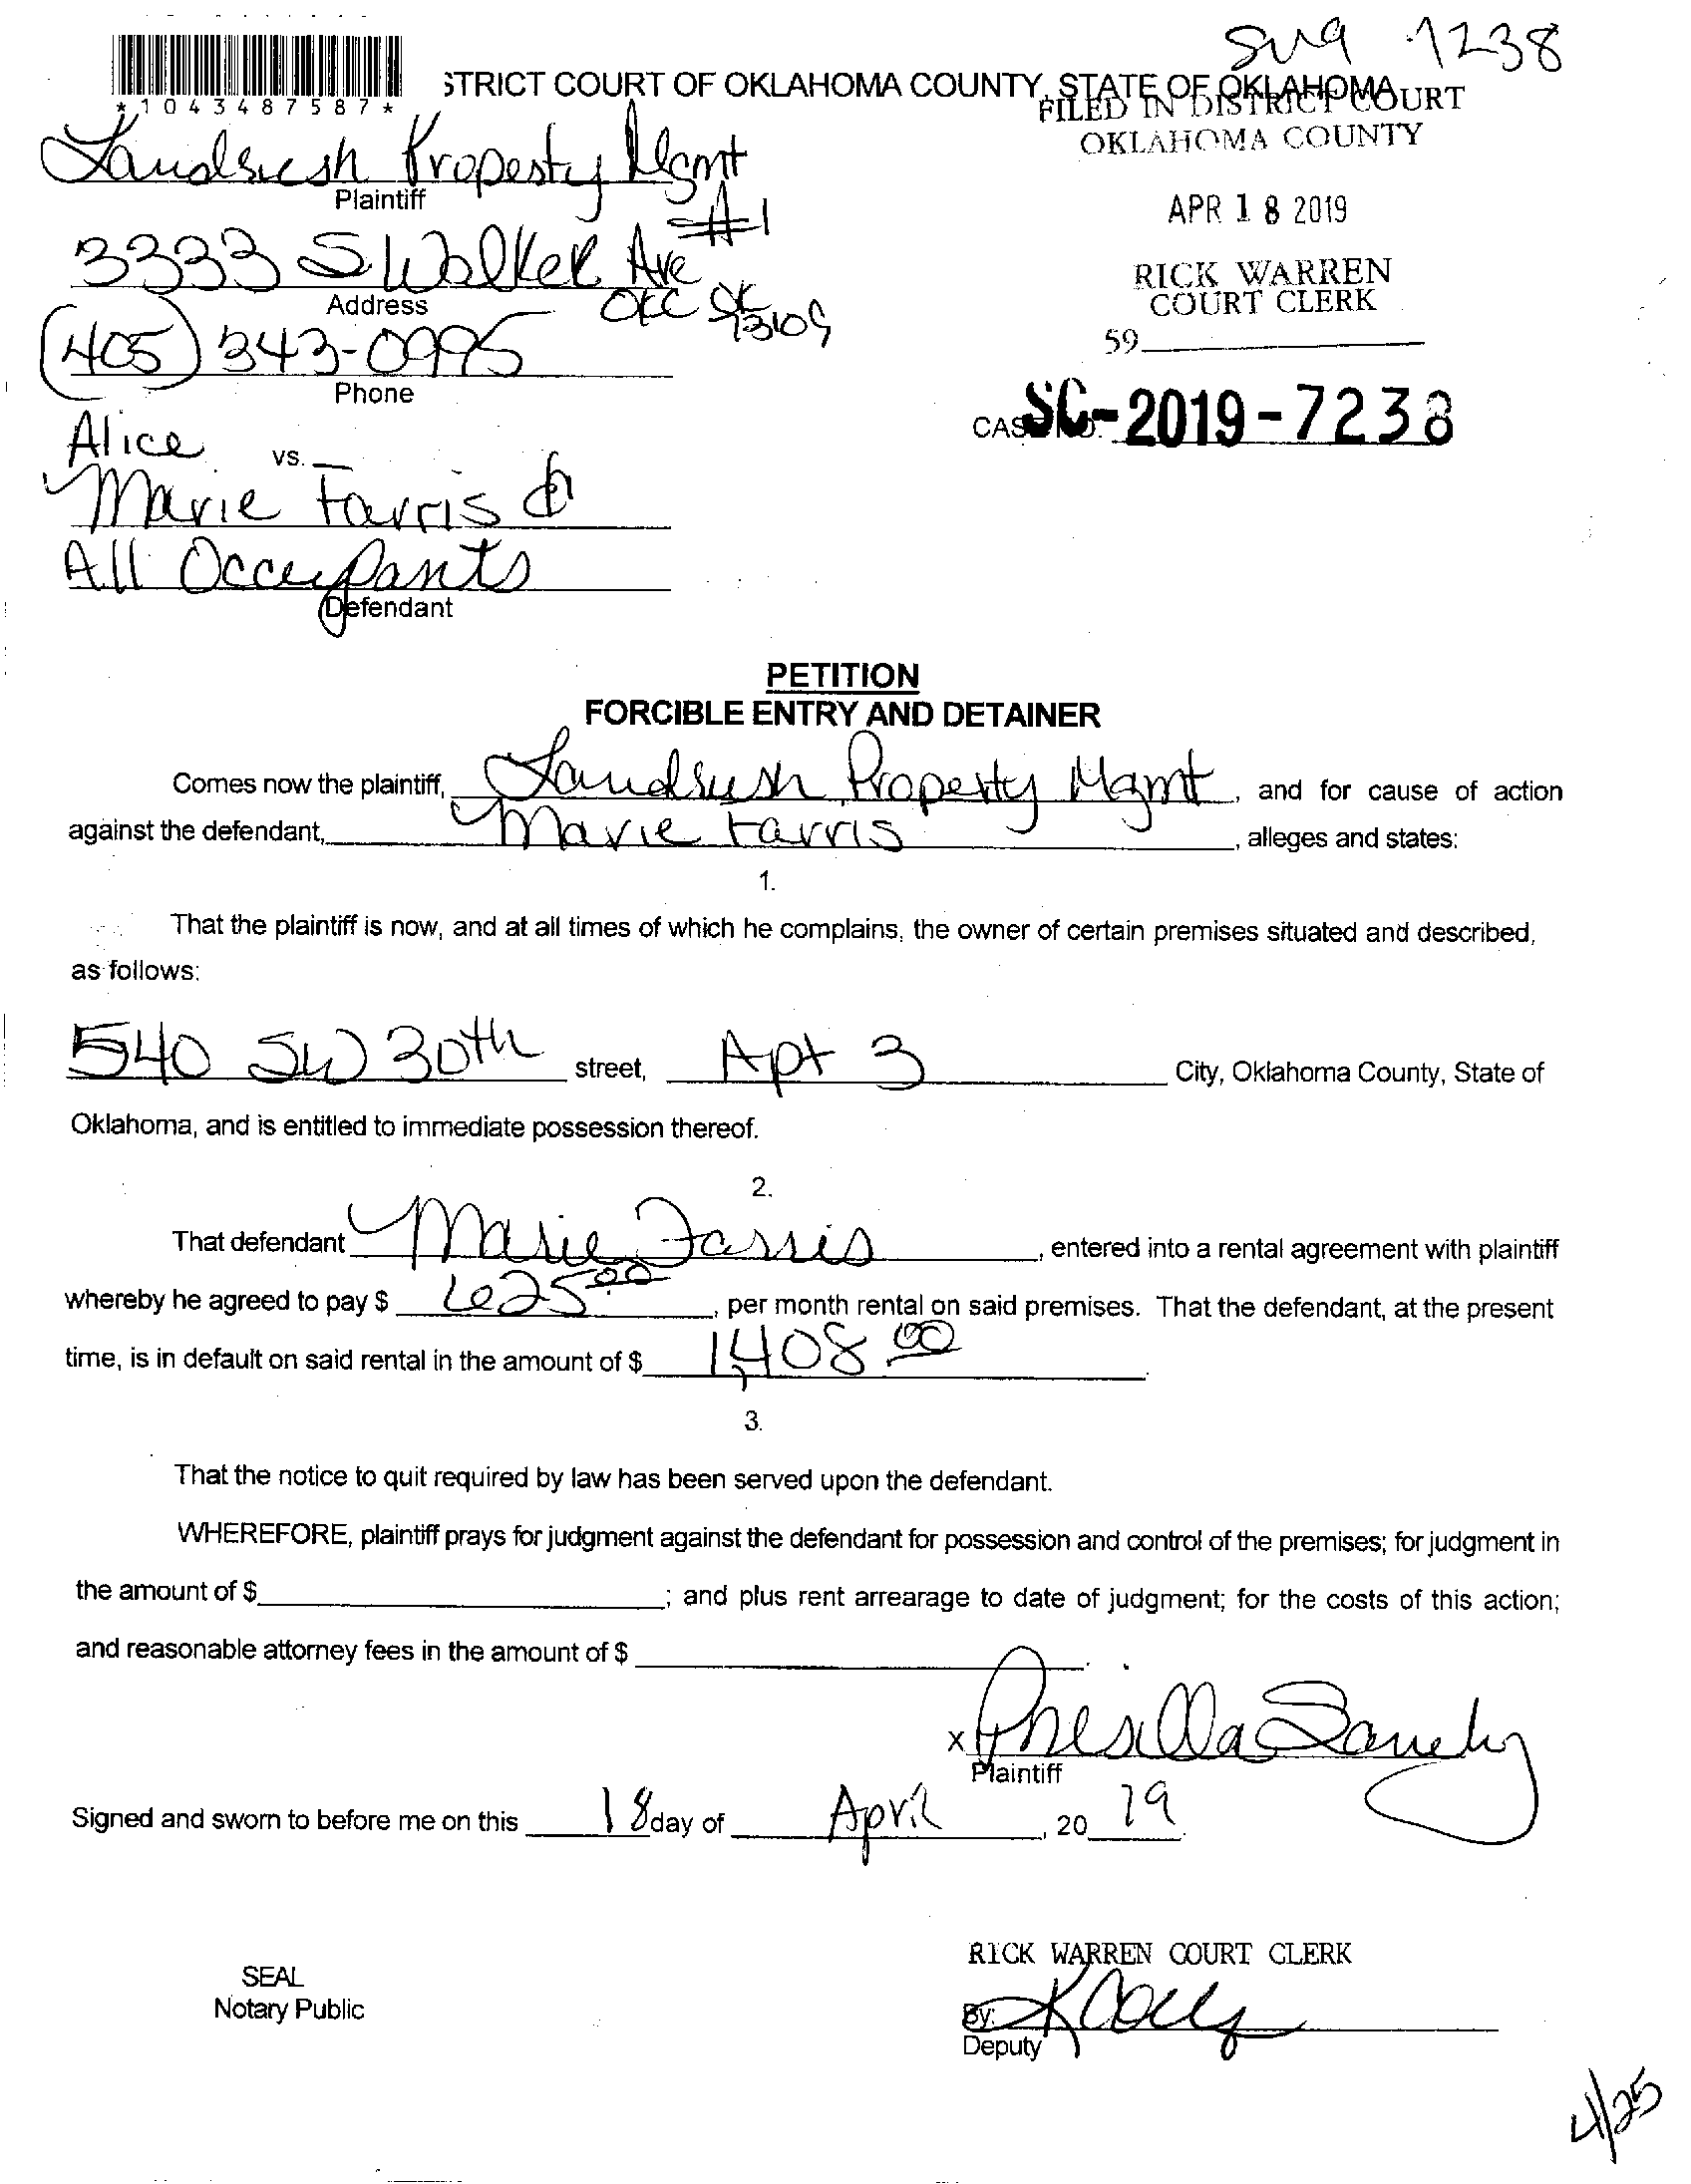 SM9 7238
*1043487587*
STRICT COURT OF OKLAHOMA COUNTY, STATE OF OKLAHOMA
FILED IN DISTRICT COURT
OKLAHOMA COUNTY
Landrush Property Mgmt
Plaintiff
APR 18 2019
#1
3333 S Walker Ave
Address
OKC OK 73109
RICK WARREN
COURT CLERK
(405) 343-0995
Phone
59
CASE NO. SC-2019-7238
Alice
vs.
Marie Farris &
All Occupants
Defendant
PETITION
FORCIBLE ENTRY AND DETAINER
Comes now the plaintiff, Landrush Property Mgmt, and for cause of action
against the defendant, Marie Farris, alleges and states:
1.
That the plaintiff is now, and at all times of which he complains, the owner of certain premises situated and described,
as follows:
540 SW 30th street, Apt 3 City, Oklahoma County, State of
Oklahoma, and is entitled to immediate possession thereof.
2.
That defendant Marie Farris, entered into a rental agreement with plaintiff
whereby he agreed to pay $ 625.00, per month rental on said premises. That the defendant, at the present
time, is in default on said rental in the amount of $ 1,408.00.
3.
That the notice to quit required by law has been served upon the defendant.
WHEREFORE, plaintiff prays for judgment against the defendant for possession and control of the premises; for judgment in
the amount of $ ; and plus rent arrearage to date of judgment; for the costs of this action;
and reasonable attorney fees in the amount of $ .
x Presilla Sanchez
Plaintiff
Signed and sworn to before me on this 18 day of April, 20 19.
RICK WARREN COURT CLERK
SEAL
Notary Public
By:
Deputy
4/25